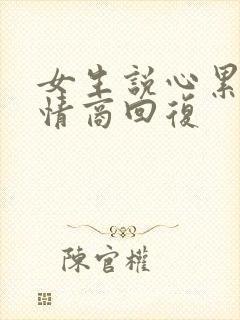 女生説心累
情商回復
陳官權